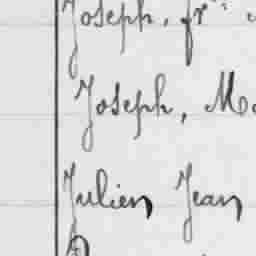 Joseph, fr
Joseph, Ma
Julien Jean